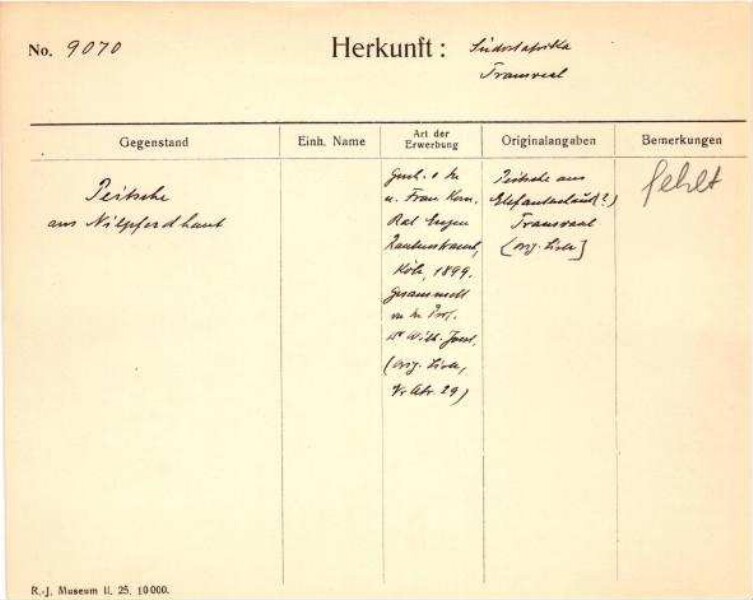 No. 9070
Herkunft: Südostafrika
Transvaal
Gegenstand
Einh. Name
Art der Erwerbung
Originalangaben
Bemerkungen
Peitsche
aus Nilpferdhaut
Gesch. v. Hr.
u. Frau Kom.
Rat Eugen
Rautenstrauch,
Köln, 1899.
Gesammelt
von Hr. Prof.
Dr Wilh. Joest.
(orig. Liste,
29)
Peitsche aus
Elefantenhaut(?)
Transvaal
[orig. Liste]
fehlt
R.-J. Museum II. 25. 10000.